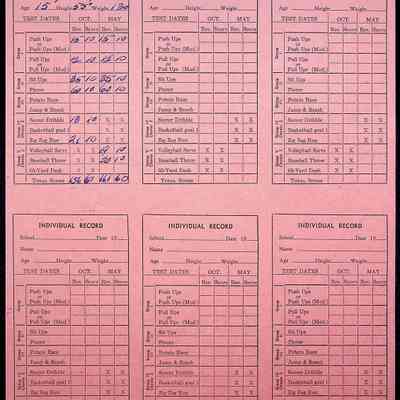 Age 15 Height 55" Weight Age Height Weight Age Height Weight
TEST DATES OCT. MAY TEST DATES OCT. MAY TEST DATES OCT. MAY
Rec. Score Rec. Score Rec. Score Rec. Score Rec. Score Rec. Score
Push Ups 15 10 15 10 Push Ups Push Ups
or or or
Push Ups (Mod.) Push Ups (Mod.) Push Ups (Mod.)
Pull Ups 12 10 12 10 Pull Ups Pull Ups
or or or
Pull Ups (Mod.) Pull Ups (Mod.) Pull Ups (Mod.)
Sit Ups 85 10 85 10 Sit Ups Sit Ups
Pincer 60 10 60 10 Pincer Pincer
Potato Race Potato Race Potato Race
Jump & Reach Jump & Reach Jump & Reach
Soccer Dribble 18 10 X X Soccer Dribble X X Soccer Dribble X X
Basketball goal X X Basketball goal X X Basketball goal X X
Zig Zag Run 21 10 X X Zig Zag Run X X Zig Zag Run X X
Volleyball Serve X X 10 Volleyball Serve X X Volleyball Serve X X
Baseball Throw X X 20 10 Baseball Throw X X Baseball Throw X X
60-Yard Dash X X 60-Yard Dash X X 60-Yard Dash X X
TOTAL SCORE 60 60 TOTAL SCORE TOTAL SCORE
INDIVIDUAL RECORD INDIVIDUAL RECORD INDIVIDUAL RECORD
School Date 19 School Date 19 School Date 19
Name Name Name
Age Height Weight Age Height Weight Age Height Weight
TEST DATES OCT. MAY TEST DATES OCT. MAY TEST DATES OCT. MAY
Rec. Score Rec. Score Rec. Score Rec. Score Rec. Score Rec. Score
Push Ups Push Ups Push Ups
or or or
Push Ups (Mod.) Push Ups (Mod.) Push Ups (Mod.)
Pull Ups Pull Ups Pull Ups
or or or
Pull Ups (Mod.) Pull Ups (Mod.) Pull Ups (Mod.)
Sit Ups Sit Ups Sit Ups
Pincer Pincer Pincer
Potato Race Potato Race Potato Race
Jump & Reach Jump & Reach Jump & Reach
Soccer Dribble X X Soccer Dribble X X Soccer Dribble X X
Basketball goal X X Basketball goal X X Basketball goal X X
Zig Zag Run X X Zig Zag Run X X Zig Zag Run X X